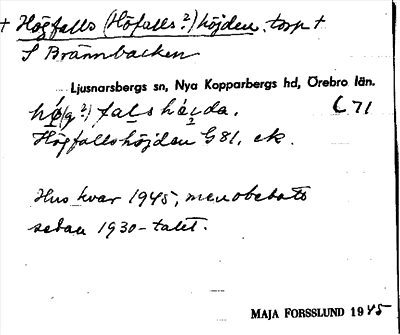 + Högfalls (Höfalls?) höjden. torp +
S Brännbacken
Ljusnarsbergs sn, Nya Kopparbergs hd, Örebro län.
C 71
Högfallshöjden G 81, ek.
Hus kvar 1945, men obebott
sedan 1930-talet.
MAJA FORSSLUND 1945